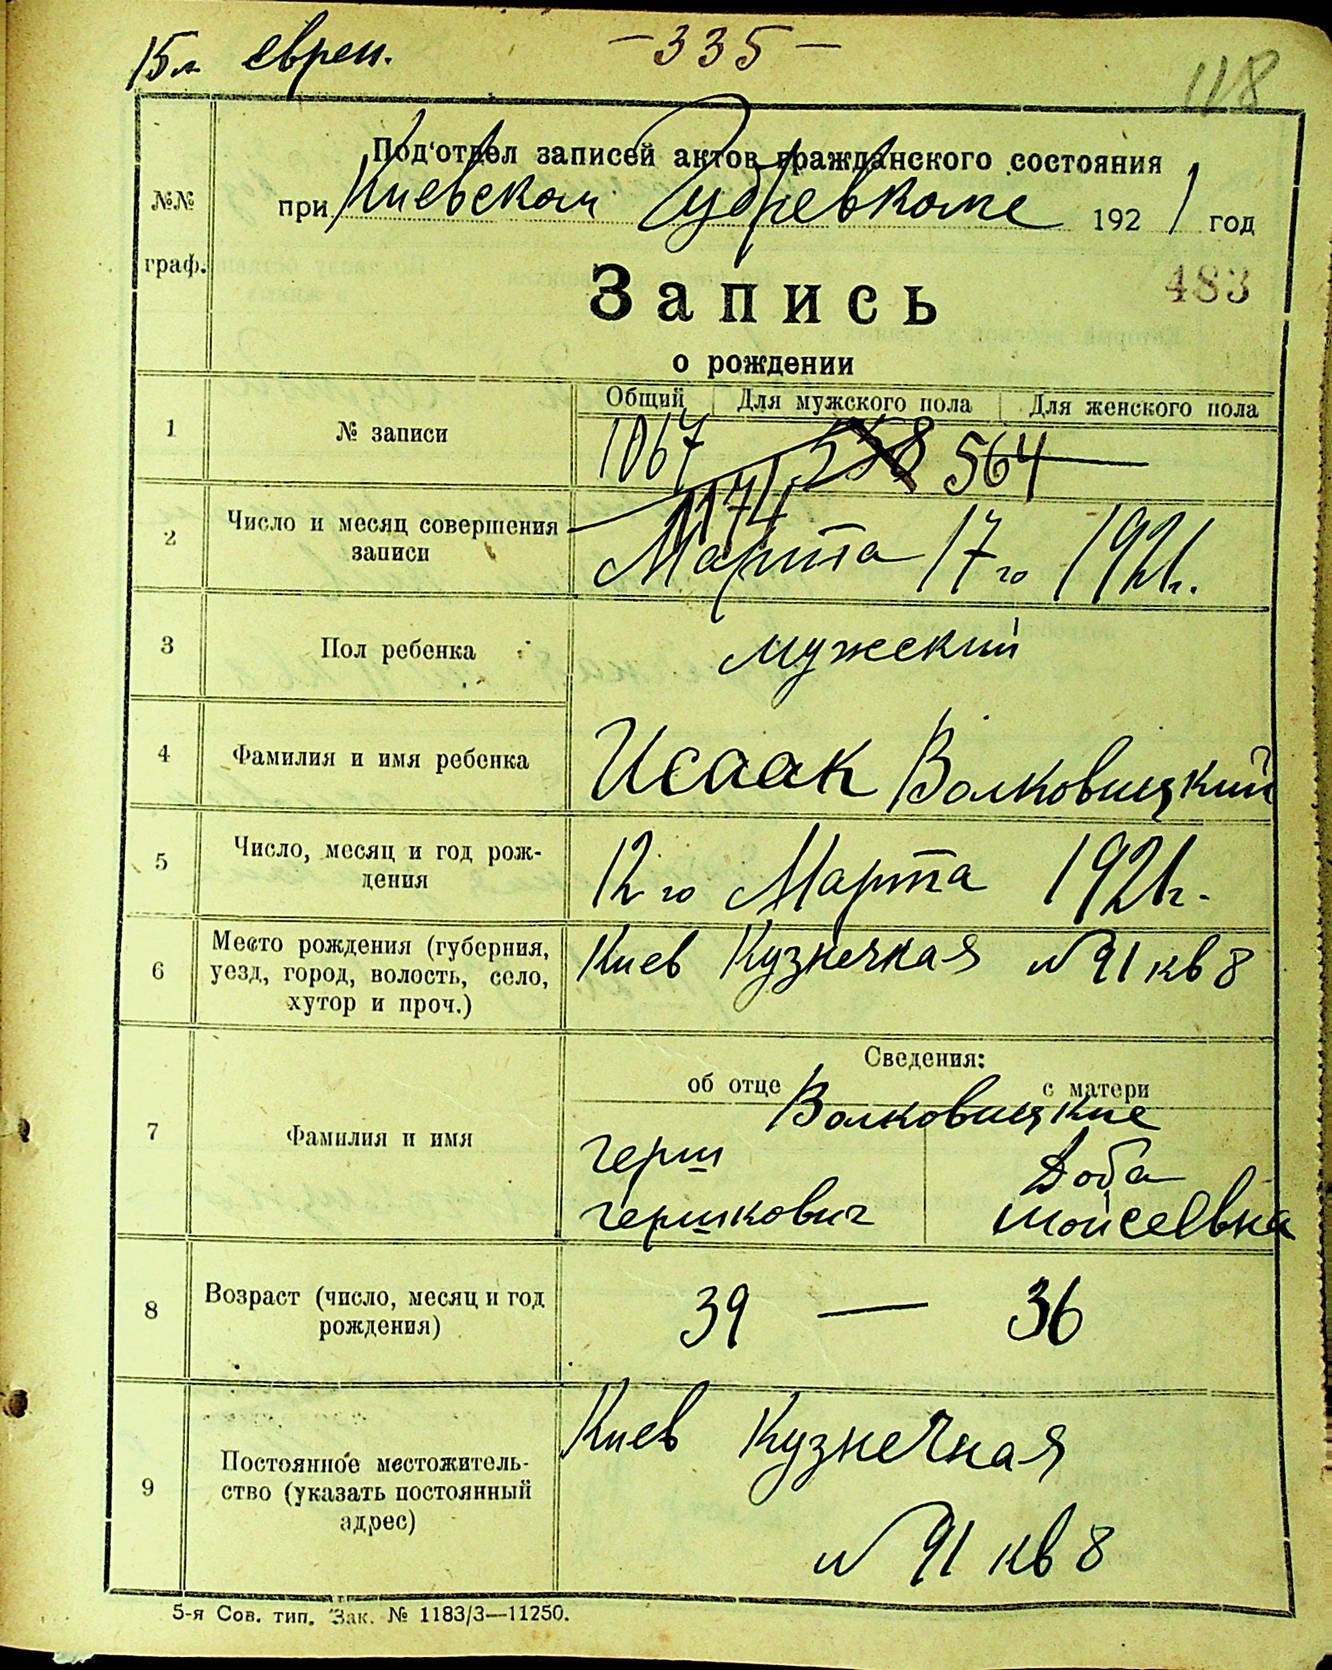 15л евреи.
—335—
118
Под'отдел записей актов гражданского состояния
при Киевском Губревкоме 1921 год
№№ граф.
483
Запись
о рождении
Общий Для мужского пола Для женского пола
1 № записи 1067 558 564
1174
2 Число и месяц совершения записи Марта 17го 1921г.
3 Пол ребенка мужеский
4 Фамилия и имя ребенка Исаак Волковицкий
5 Число, месяц и год рож-
дения 12го Марта 1921г.
6 Место рождения (губерния,
уезд, город, волость, село,
хутор и проч.) Киев Кузнечная № 91 кв 8
Сведения:
об отце о матери
Волковицкие
7 Фамилия и имя
Герш Доба
Гершкович Мойсеевна
8 Возраст (число, месяц и год
рождения) 39 — 36
9 Постоянное местожитель-
ство (указать постоянный
адрес) Киев Кузнечная
№ 91 кв 8
5-я Сов. тип. Зак. № 1183/3—11250.